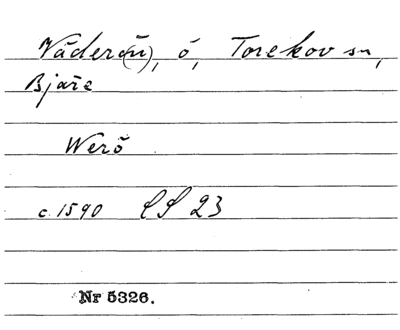 Väderö(n), ö, Torekov sn,
Bjäre
Werö
c. 1590 LS 23
Nr 5326.